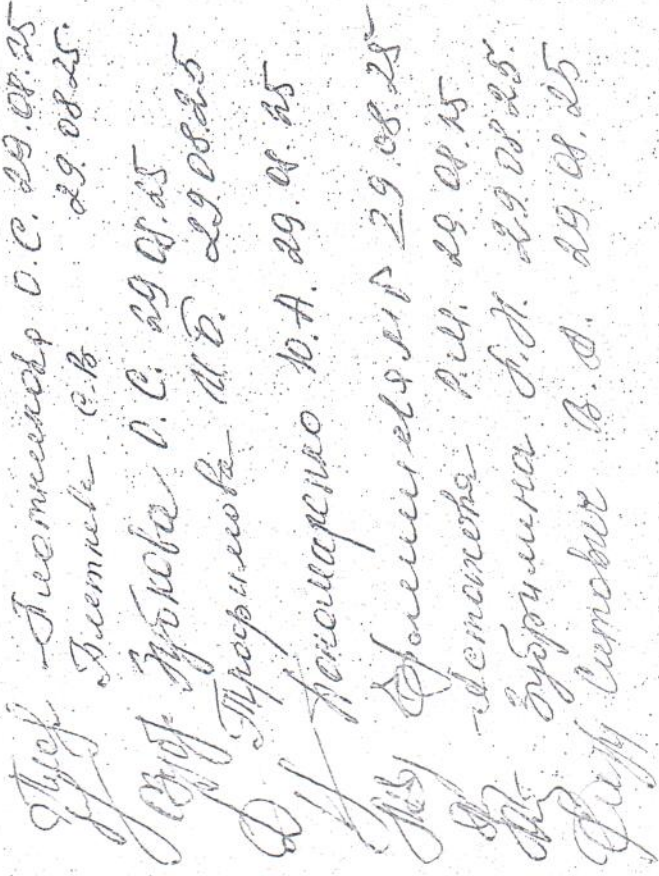 Плотникова О.С. 29.08.25
Плетнева С.В. 29.08.25.
Зубкова О.С. 29.08.25
Трофимова И.Б. 29.08.25
Пономаренко Ю.А. 29.08.25
29.08.25
Астахова Р.М. 29.08.25
Зубрилина Л.Н. 29.08.25.
Ситович В.А. 29.08.25